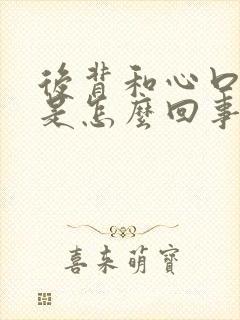 後背和心口
是怎麼回事
喜來萌寶